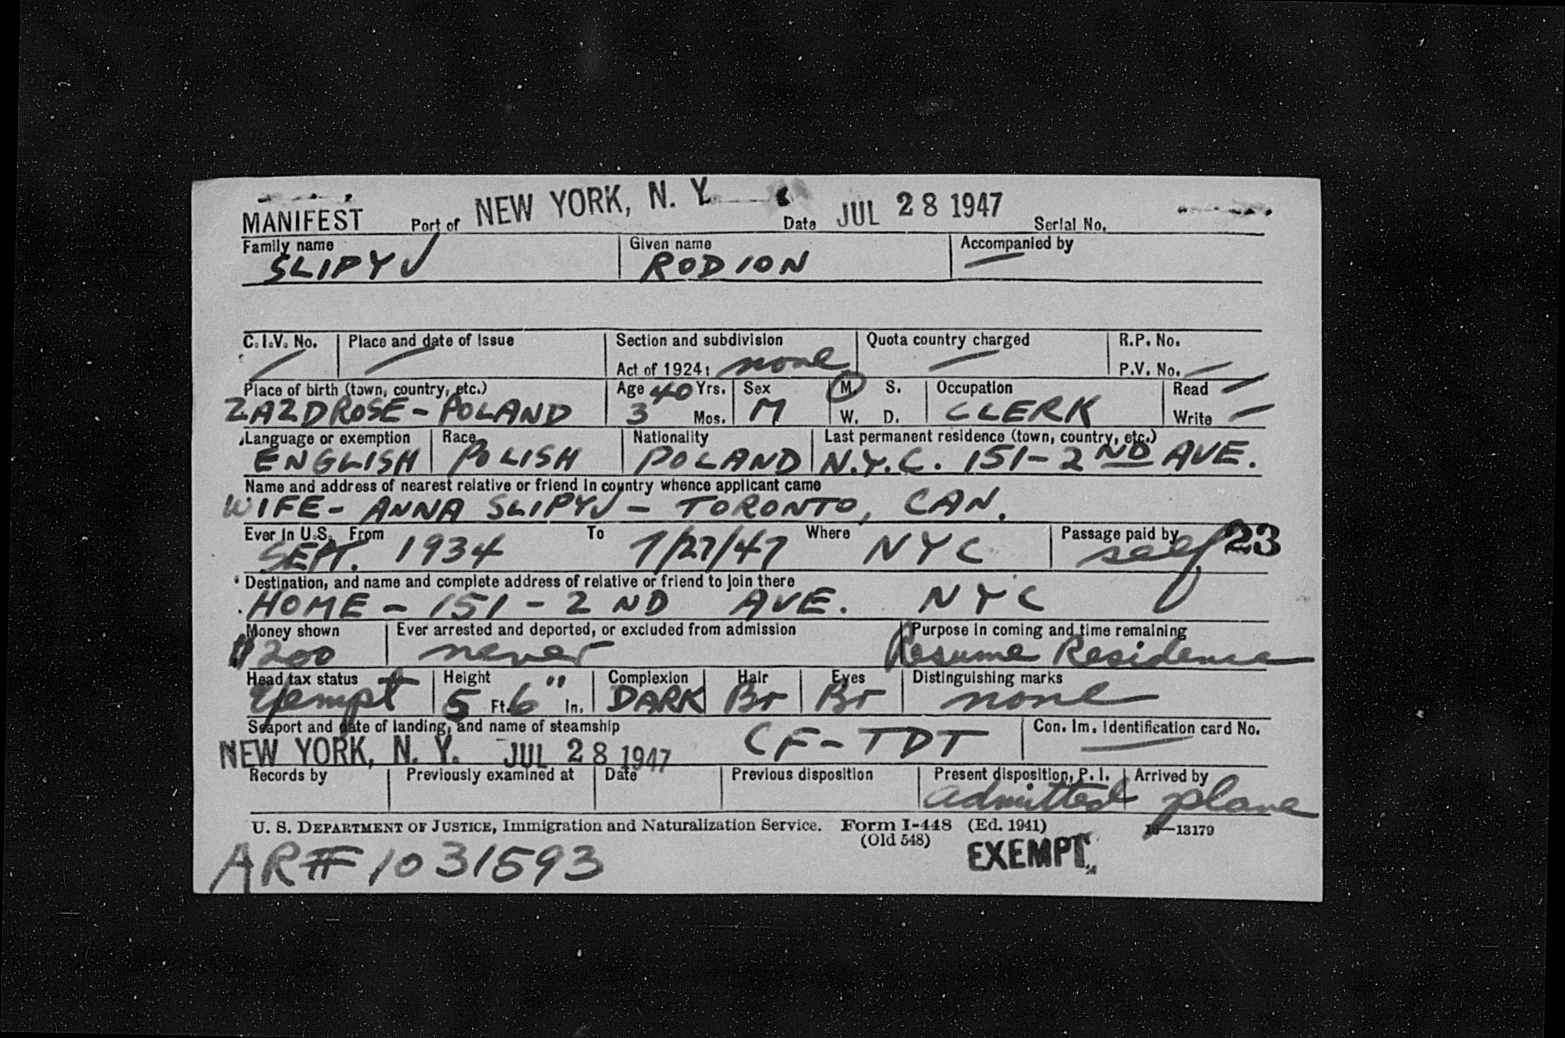 MANIFEST Port of NEW YORK, N. Y. Date JUL 28 1947 Serial No.
Family name Given name Accompanied by
SLIPYJ RODION —
C.I.V. No. Place and date of issue Section and subdivision Quota country charged R.P. No.
Act of 1924: none P.V. No. —
Place of birth (town, country, etc.) Age 40 Yrs. Sex M S. Occupation Read —
ZAZDROSE - POLAND 3 Mos. M W. D. CLERK Write —
Language or exemption Race Nationality Last permanent residence (town, country, etc.)
ENGLISH POLISH POLAND N.Y.C. 151-2ND AVE.
Name and address of nearest relative or friend in country whence applicant came
WIFE - ANNA SLIPYJ - TORONTO, CAN.
Ever in U.S. From To Where Passage paid by 23
SEPT. 1934 7/27/47 NYC self
Destination, and name and complete address of relative or friend to join there
HOME - 151 - 2 ND AVE. NYC
Money shown Ever arrested and deported, or excluded from admission Purpose in coming and time remaining
$200 never Resume Residence
Head tax status Height Complexion Hair Eyes Distinguishing marks
exempt 5 Ft. 6" In. DARK Br Br none
Seaport and date of landing, and name of steamship Con. Im. Identification card No.
NEW YORK, N. Y. JUL 28 1947 CF-TDT —
Records by Previously examined at Date Previous disposition Present disposition, P. I. Arrived by
admitted plane
U. S. DEPARTMENT OF JUSTICE, Immigration and Naturalization Service. Form I-448 (Ed. 1941) 16—13179
(Old 548)
AR# 1031593 EXEMPT